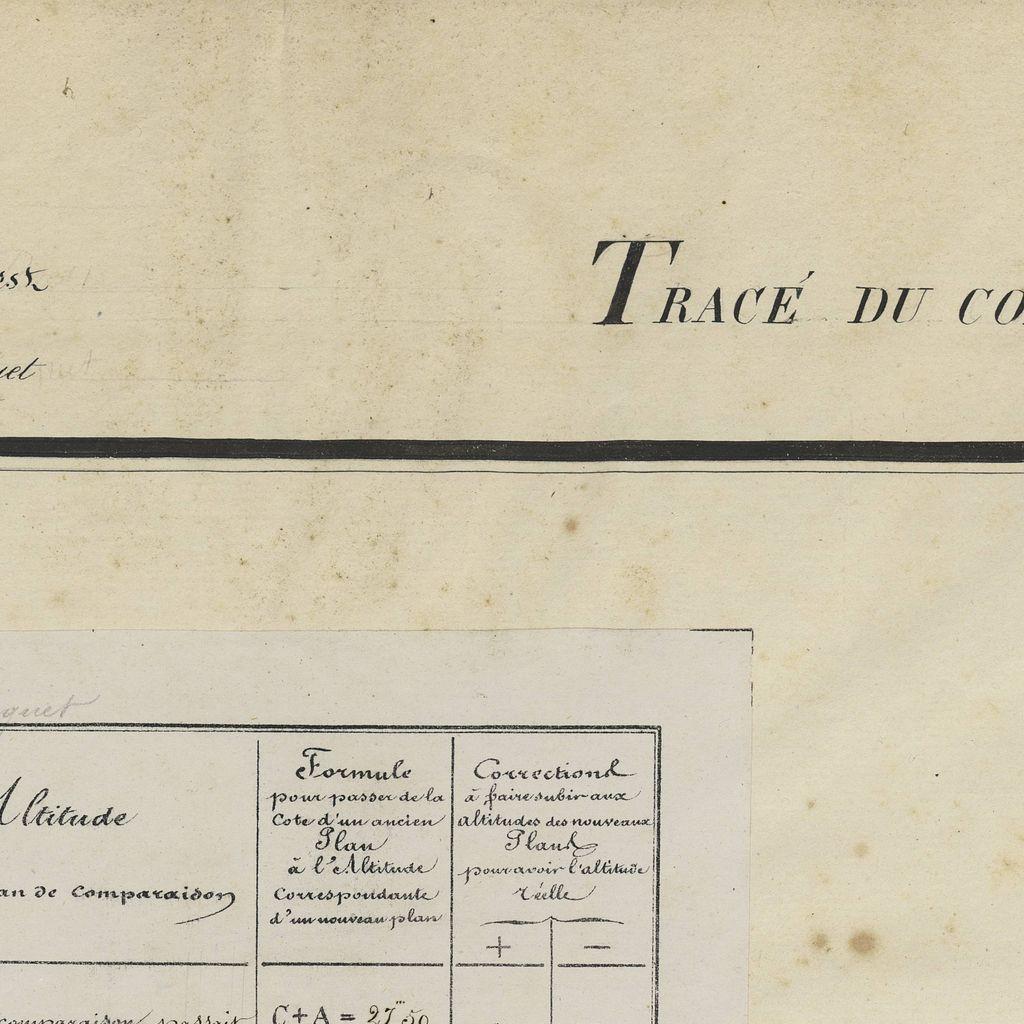 TRACÉ DU CO
Altitude
an de comparaison
Formule
pour passer de la
Cote d'un ancien
Plan
à l'Altitude
Correspondante
d'un nouveau plan
Corrections
à faire subir aux
altitudes des nouveaux
Plans
pour avoir l'altitude
réelle
+ −
comparaison passait
C + A = 27m50